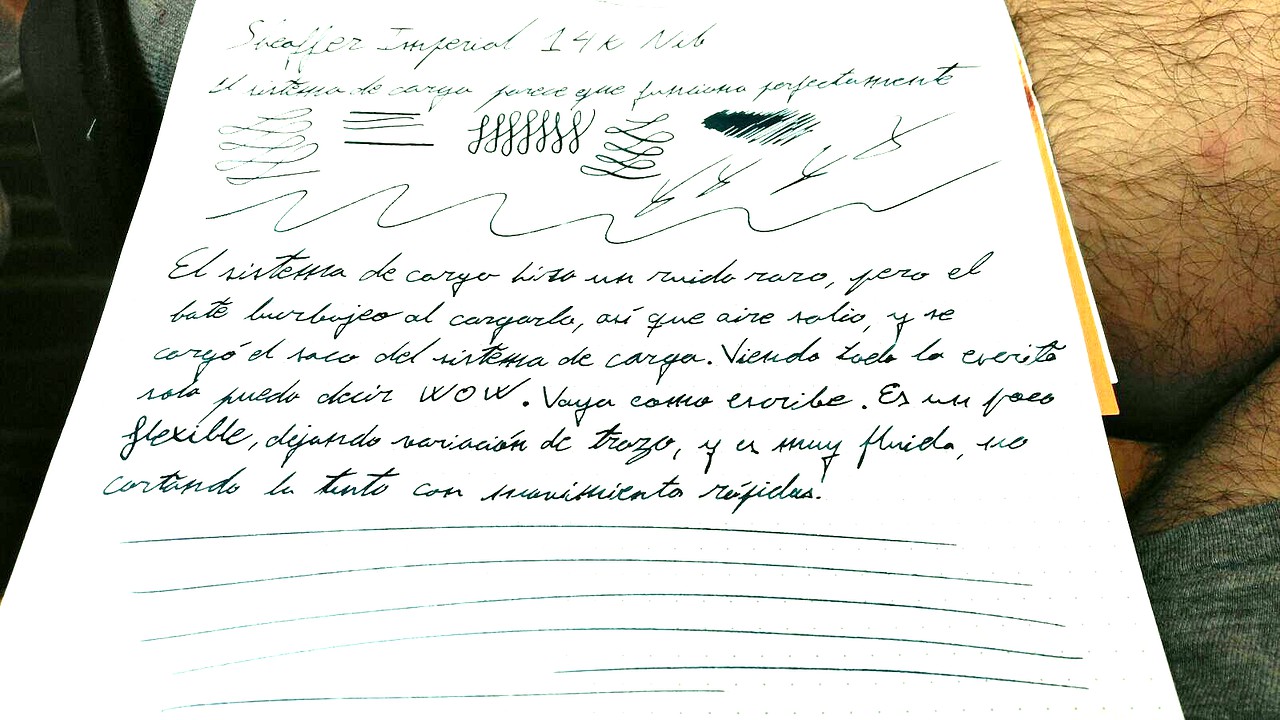 Sheaffer Imperial 14k Nib
El sistema de carga parece que funciona perfectamente
El sistema de carga hizo un ruido raro, pero el
bote burbujeo al cargarla, así que aire salio, y se
cargó el saco del sistema de carga. Viendo todo lo escrito
solo puedo decir WOW. Vaya como escribe. Es un poco
flexible, dejando variación de trazo, y es muy fluida, no
cortando la tinta con movimientos rápidos.